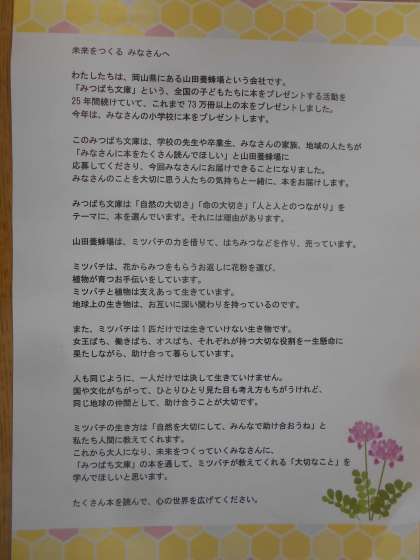 未来をつくる みなさんへ
わたしたちは、岡山県にある山田養蜂場という会社です。
「みつばち文庫」という、全国の子どもたちに本をプレゼントする活動を
25年間続けていて、これまで73万冊以上の本をプレゼントしました。
今年は、みなさんの小学校に本をプレゼントします。
このみつばち文庫は、学校の先生や卒業生、みなさんの家族、地域の人たちが
「みなさんに本をたくさん読んでほしい」と山田養蜂場に
応募してくださり、今回みなさんにお届けできることになりました。
みなさんのことを大切に思う人たちの気持ちと一緒に、本をお届けします。
みつばち文庫は「自然の大切さ」「命の大切さ」「人と人とのつながり」を
テーマに、本を選んでいます。それには理由があります。
山田養蜂場は、ミツバチの力を借りて、はちみつなどを作り、売っています。
ミツバチは、花からみつをもらうお返しに花粉を運び、
植物が育つお手伝いをしています。
ミツバチと植物は支えあって生きています。
地球上の生き物は、お互いに深い関わりを持っているのです。
また、ミツバチは1匹だけでは生きていけない生き物です。
女王ばち、働きばち、オスばち、それぞれが持つ大切な役割を一生懸命に
果たしながら、助け合って暮らしています。
人も同じように、一人だけでは決して生きていけません。
国や文化がちがって、ひとりひとり見た目も考え方もちがうけれど、
同じ地球の仲間として、助け合うことが大切です。
ミツバチの生き方は「自然を大切にして、みんなで助け合おうね」と
私たち人間に教えてくれます。
これから大人になり、未来をつくっていくみなさんに、
「みつばち文庫」の本を通して、ミツバチが教えてくれる「大切なこと」を
学んでほしいと思います。
たくさん本を読んで、心の世界を広げてください。